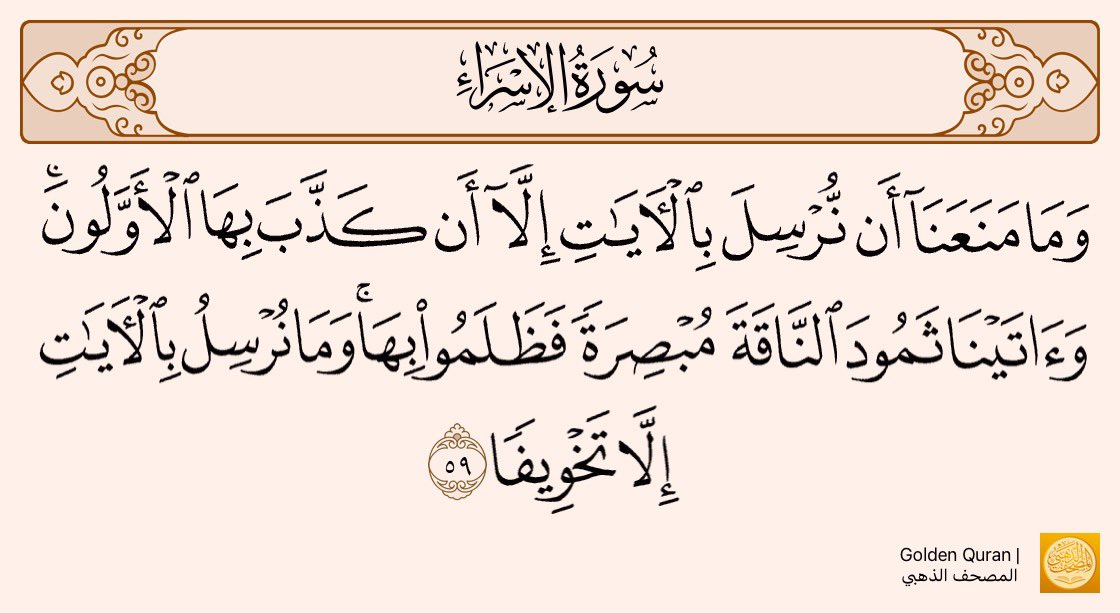 سُورَةُ الإِسْرَاءِ
وَمَا مَنَعَنَآ أَن نُّرْسِلَ بِٱلْـَٔايَـٰتِ إِلَّآ أَن كَذَّبَ بِهَا ٱلْأَوَّلُونَ ۚ
وَءَاتَيْنَا ثَمُودَ ٱلنَّاقَةَ مُبْصِرَةً فَظَلَمُوا۟ بِهَا ۚ وَمَا نُرْسِلُ بِٱلْـَٔايَـٰتِ
إِلَّا تَخْوِيفًا ٥٩
Golden Quran |
المصحف الذهبي